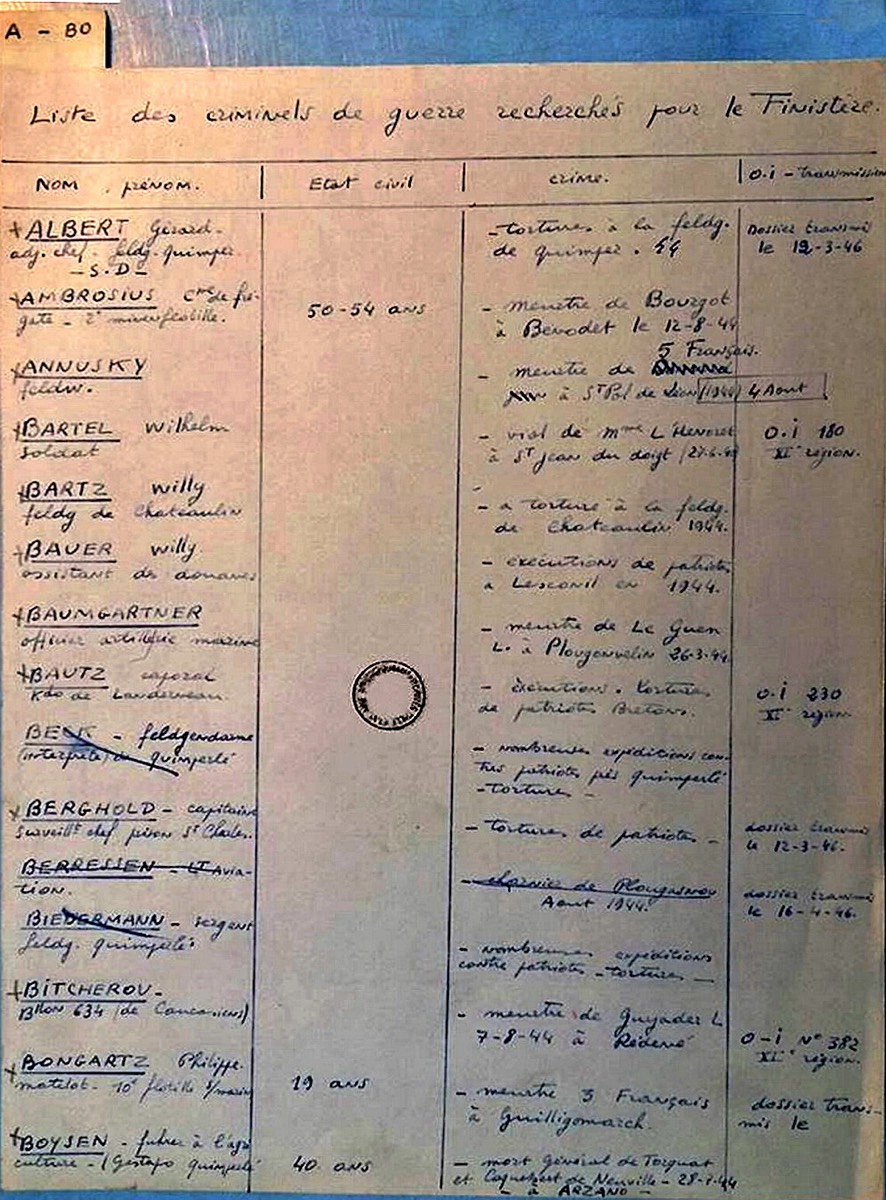 A - 80
Liste des criminels de guerre recherchés pour le Finistère.
NOM . prénom. Etat civil crime. O.i - transmission
+ALBERT Gérard. - tortures à la feldg. Dossier transmis
adj. chef. feldg. quimper. de quimper . 44 le 12-3-46
- S.D -
+AMBROSIUS Cne de fré- 50-54 ans - meurtre de Bourgot
gate - 2e minenflotille. à Benodet le 12-8-44
5 Français.
+ANNUSKY - meurtre de
feldw. à St Pol de Léon (1944) 4 Aout
+BARTEL Wilhelm - viol de Mme L'Henoret O.i 180
soldat à St Jean du doigt (27-6- XIe région.
+BARTZ Willy - a torturé à la feldg.
feldg de Chateaulin de Chateaulin 1944.
+BAUER Willy - exécutions de patriotes
assistant des douanes à Lesconil en 1944.
+BAUMGARTNER - meurtre de Le Guen
officier artillerie marine L. à Plougonvelin 26-3-44.
+BAUTZ caporal - exécutions . tortures O.i 230
Kdo de Landerneau. de patriotes Bretons. XIe région
BENK - feldgendarme - nombreuses expéditions con-
(interprète) de quimperlé tres patriotes près quimperlé
- tortures -
+BERGHOLD - capitaine - tortures de patriotes - dossier transmis
surveillt chef prison St Charles. le 12-3-46.
BERRESSEN - LT Avia- - charnier de Plougasnou dossier transmis
tion. Aout 1944. le 16-4-46.
BIEDERMANN - sergent - nombreuses expéditions
feldg. quimperlé contre patriotes - tortures -
+BITCHEROV - - meurtre de Guyader L O-i N° 382
Bllon 634 (de Caucasiens) 7-8-44 à Rédené XIe région.
+BONGARTZ Philippe. 19 ans - meurtre 3 Français dossier trans-
matelot. 10e flotille s/marin à Guilligomarch. mis le
+BOYSEN - fuhrer à l'agri 40 ans - mort général de Torquat
culture - (Gestapo quimperlé et Coquebert de Neuville - 28-7-44
- à ARZANO -